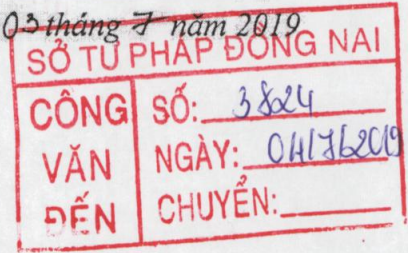 03 tháng 7 năm 2019
SỞ TƯ PHÁP ĐỒNG NAI
CÔNG VĂN ĐẾN
SỐ: 3824
NGÀY: 04/7/2019
CHUYỂN: